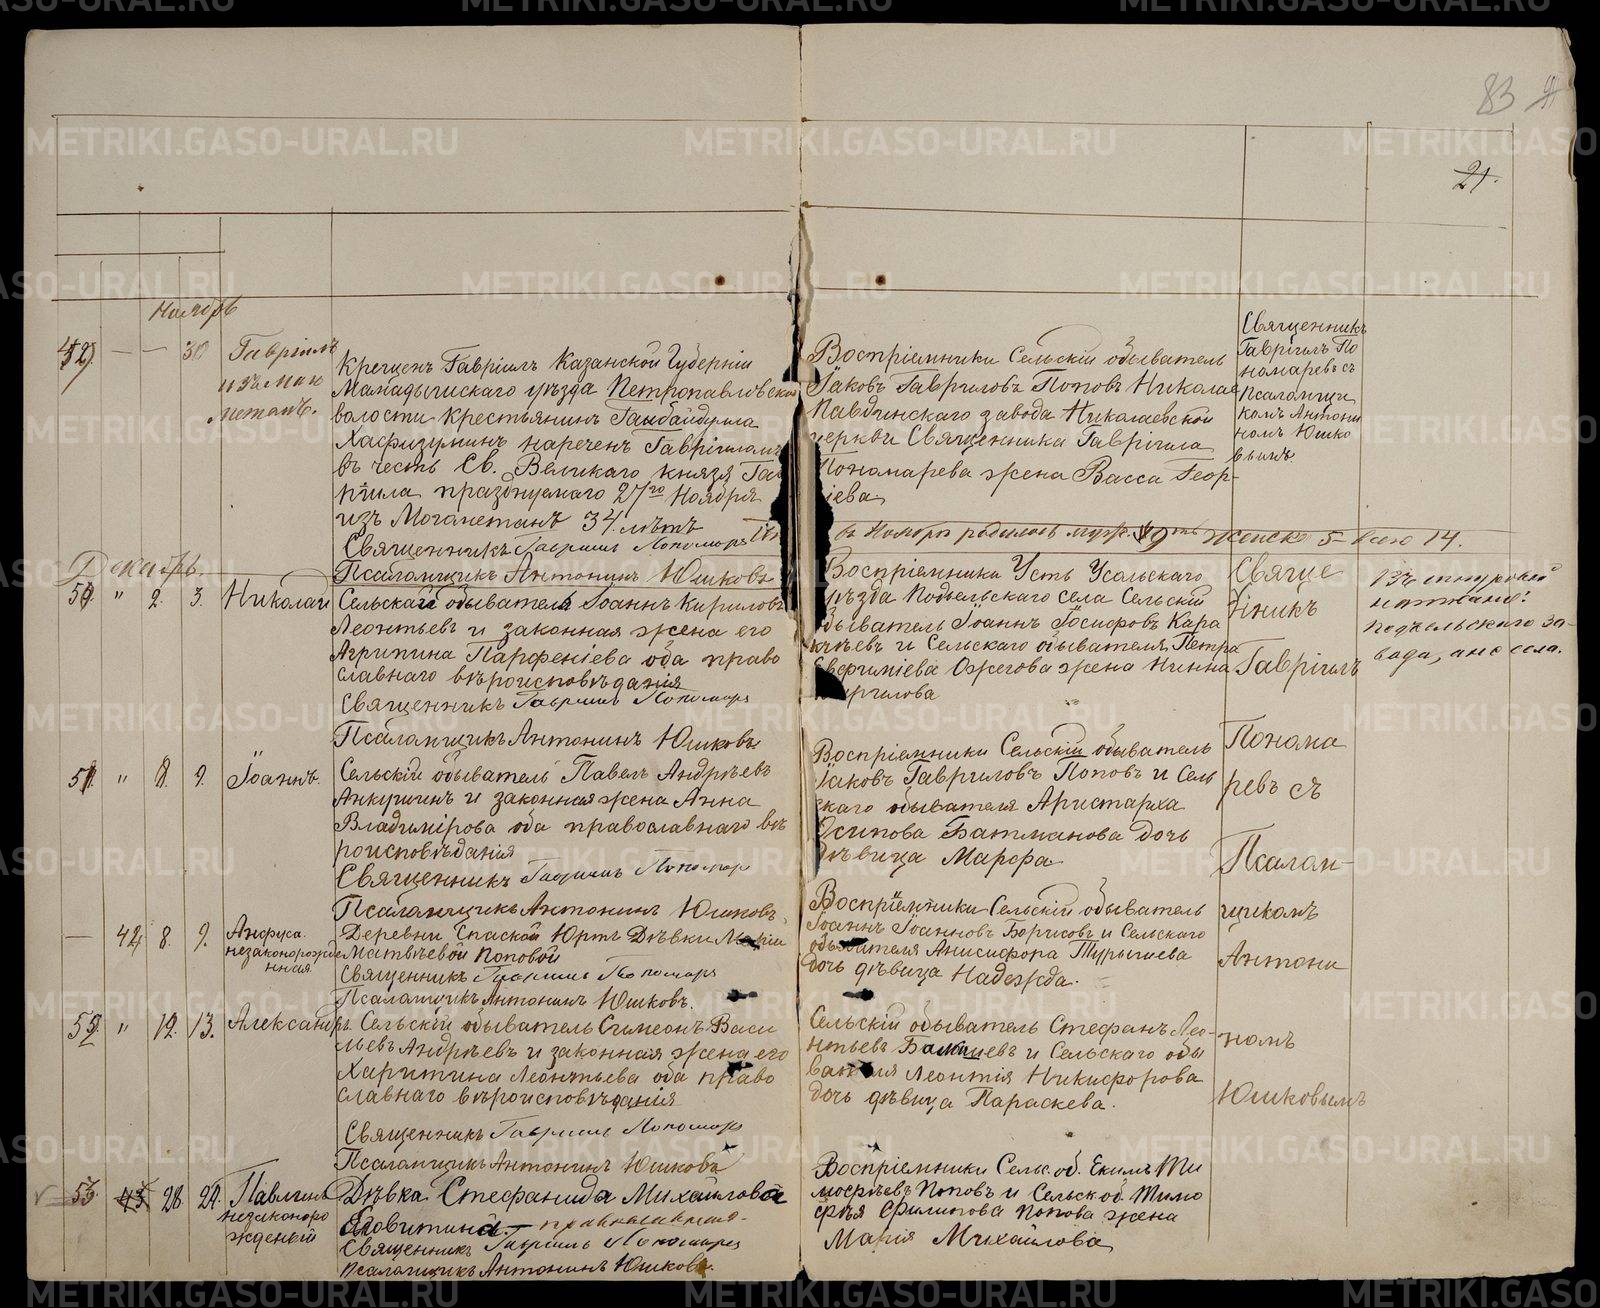 83
21.
Ноябрь
30
Гавріилъ
изъ маго
метанъ.
Крещенъ Гавріилъ Казанской Губерніи
Мамадышскаго уѣзда Петропавловской
волости крестьянинъ
нареченъ Гавріиломъ
въ честь Св. Великаго князя Гав
ріила празднуемаго 27го Ноября
изъ Магометанъ 34. лѣтъ
Священникъ Гавріилъ Пономарев
Псаломщикъ Антонинъ Юшковъ
Воспріемники Сельскій обыватель
Іаковъ Гавриловъ Поповъ Николае
Павдинскаго завода Николаевской
церкви Священника Гавріила
Пономарева жена Васса Геор-
гіева
Священникъ
Гавріилъ По
номаревъ съ
Псаломщи
комъ Антони
номъ Юшко
вымъ.
въ Ноябрѣ родилось муж. 9ть Женск 5 всего 14.
Декабрь.
50. " 2. 3. Николай
Сельскій обыватель Іоаннъ Кириловъ
Леонтьевъ и законная жена его
Агрипина Парфеніева оба право
славнаго вѣроисповѣданія
Священникъ Гавріилъ Пономарев
Псаломщикъ Антонинъ Юшковъ
Воспріемники Усть Усольскаго
уѣзда Подъельскаго села Сельскій
обыватель Іоаннъ Іосифовъ Кара
и Сельскаго обывателя Петра
Евфиміева Ожегова жена Нинна
Кирилова
Изъ
Подъельскаго за-
вода, а не села.
51. " 8. 9. Іоаннъ.
Сельскій обыватель Павелъ Андрѣевъ
Анкушинъ и законная жена Анна
Владимірова оба православнаго вѣ
роисповѣданія
Священникъ Гавріилъ Пономар
Псаломщикъ Антонинъ Юшковъ.
Воспріемники Сельскій обыватель
Іаковъ Гавриловъ Поповъ и Сель
скаго обывателя Аристарха
Осипова Батманова дочь
дѣвица Марфа
— 42 8. 9. Анфуса
незаконорожде
нная
Деревни Спаской Юртъ Дѣвки Маріи
Матвѣевой Поповой
Священникъ Гавріилъ Пономарь
Псаломщикъ Антонинъ Юшковъ.
Воспріемники Сельскій обыватель
Іоаннъ Іоанновъ Борисовъ и Сельскаго
обывателя Анисифора Турышева
дочь дѣвица Надежда.
52 " 12. 13. Александръ.
Сельскій обыватель Симеонъ Васи
льевъ Андрѣевъ и законная жена его
Харитина Леонтьева оба право
славнаго вѣроисповѣданія
Священникъ Гавріилъ Пономарь
Псаломщикъ Антонинъ Юшковъ
Сельскій обыватель Стефанъ Лео-
нтьевъ и Сельскаго обы
вателя Леонтія Никифорова
дочь дѣвица Параскева.
53. 43 28. 29. Павлинъ
незаконоро
жденый
Дѣвка Стефанида Михайлова
Яговитина — православная.
Священникъ Гавріилъ Пономарь
Псаломщикъ Антонинъ Юшковъ.
Воспріемники Сельс. об. Екимъ Ти
мофѣевъ Поповъ и Сельск об. Тимо
фѣя Филипова Попова жена
Марія Михайлова
Свяще
нникъ
Гавріилъ
Понома
ревъ съ
Псалом-
щикомъ
Антони
номъ
Юшковымъ
METRIKI.GASO-URAL.RU